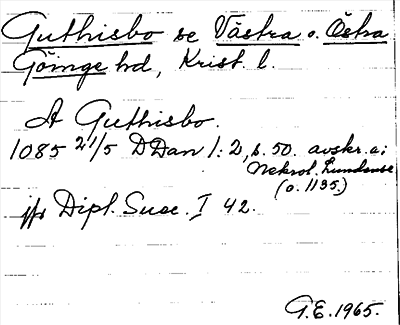 Guthisbo se Västra o. Östra
Göinge hd, Krist. l.
A Guthisbo.
1085 21/5 DDan 1:2, s. 50. avskr. a;
Nekrol. Lundense
(o. 1135.)
jfr Dipl. Suec. I 42.
G.E. 1965.